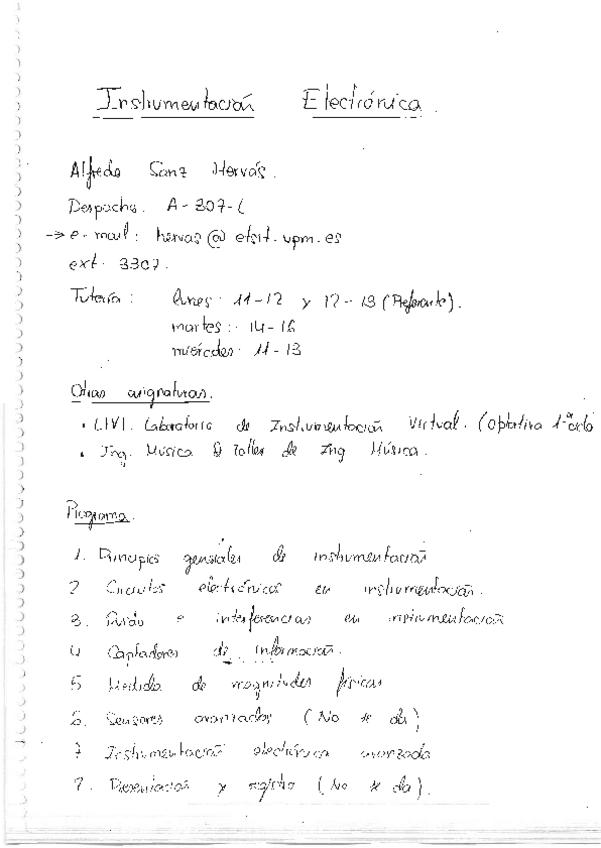 Instrumentación Electrónica.
Alfredo Sanz Hervás.
Despacho. A-307-L
→ e-mail: hervas@etsit.upm.es
ext. 3307.
Tutoría: lunes: 11-12 y 12-13 (Preferente).
martes: 14-16
miércoles: 11-13
Otras asignaturas.
• LIVI. Laboratorio de Instrumentación Virtual. (Optativa 1er ciclo
• Ing. Música Taller de Ing Música.
Programa.
1. Principios generales de instrumentación
2 Circuitos electrónicos en instrumentación.
3. Ruido e interferencias en instrumentación
4 Captadores de información.
5 Medida de magnitudes físicas
6. Sensores avanzados (No se da)
7 Instrumentación electrónica avanzada
7. Presentación y registro (No se da).